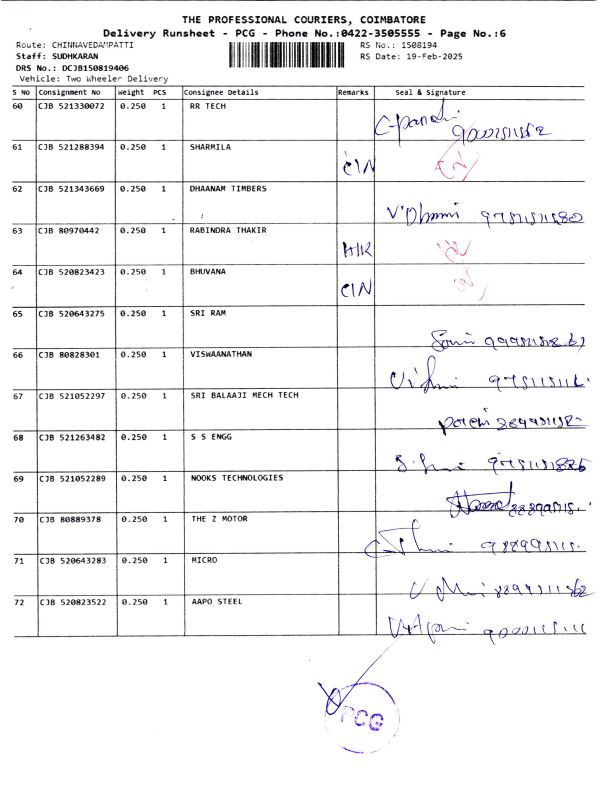 THE PROFESSIONAL COURIERS, COIMBATORE
Delivery Runsheet - PCG - Phone No.:0422-3505555 - Page No.:6
Route: CHINNAVEDAMPATTI RS No.: 1508194
Staff: SUDHKARAN RS Date: 19-Feb-2025
DRS No.: DCJB150819406
Vehicle: Two Wheeler Delivery
S No Consignment No Weight PCS Consignee Details Remarks Seal & Signature
60 CJB 521330072 0.250 1 RR TECH
61 CJB 521288394 0.250 1 SHARMILA
CIN
62 CJB 521343669 0.250 1 DHAANAM TIMBERS
63 CJB 80970442 0.250 1 RABINDRA THAKIR
64 CJB 520823423 0.250 1 BHUVANA
CIN
65 CJB 520643275 0.250 1 SRI RAM
66 CJB 80828301 0.250 1 VISWAANATHAN
67 CJB 521052297 0.250 1 SRI BALAAJI MECH TECH
68 CJB 521263482 0.250 1 S S ENGG
69 CJB 521052289 0.250 1 NOOKS TECHNOLOGIES
70 CJB 80889378 0.250 1 THE Z MOTOR
71 CJB 520643283 0.250 1 MICRO
72 CJB 520823522 0.250 1 AAPO STEEL
PCG